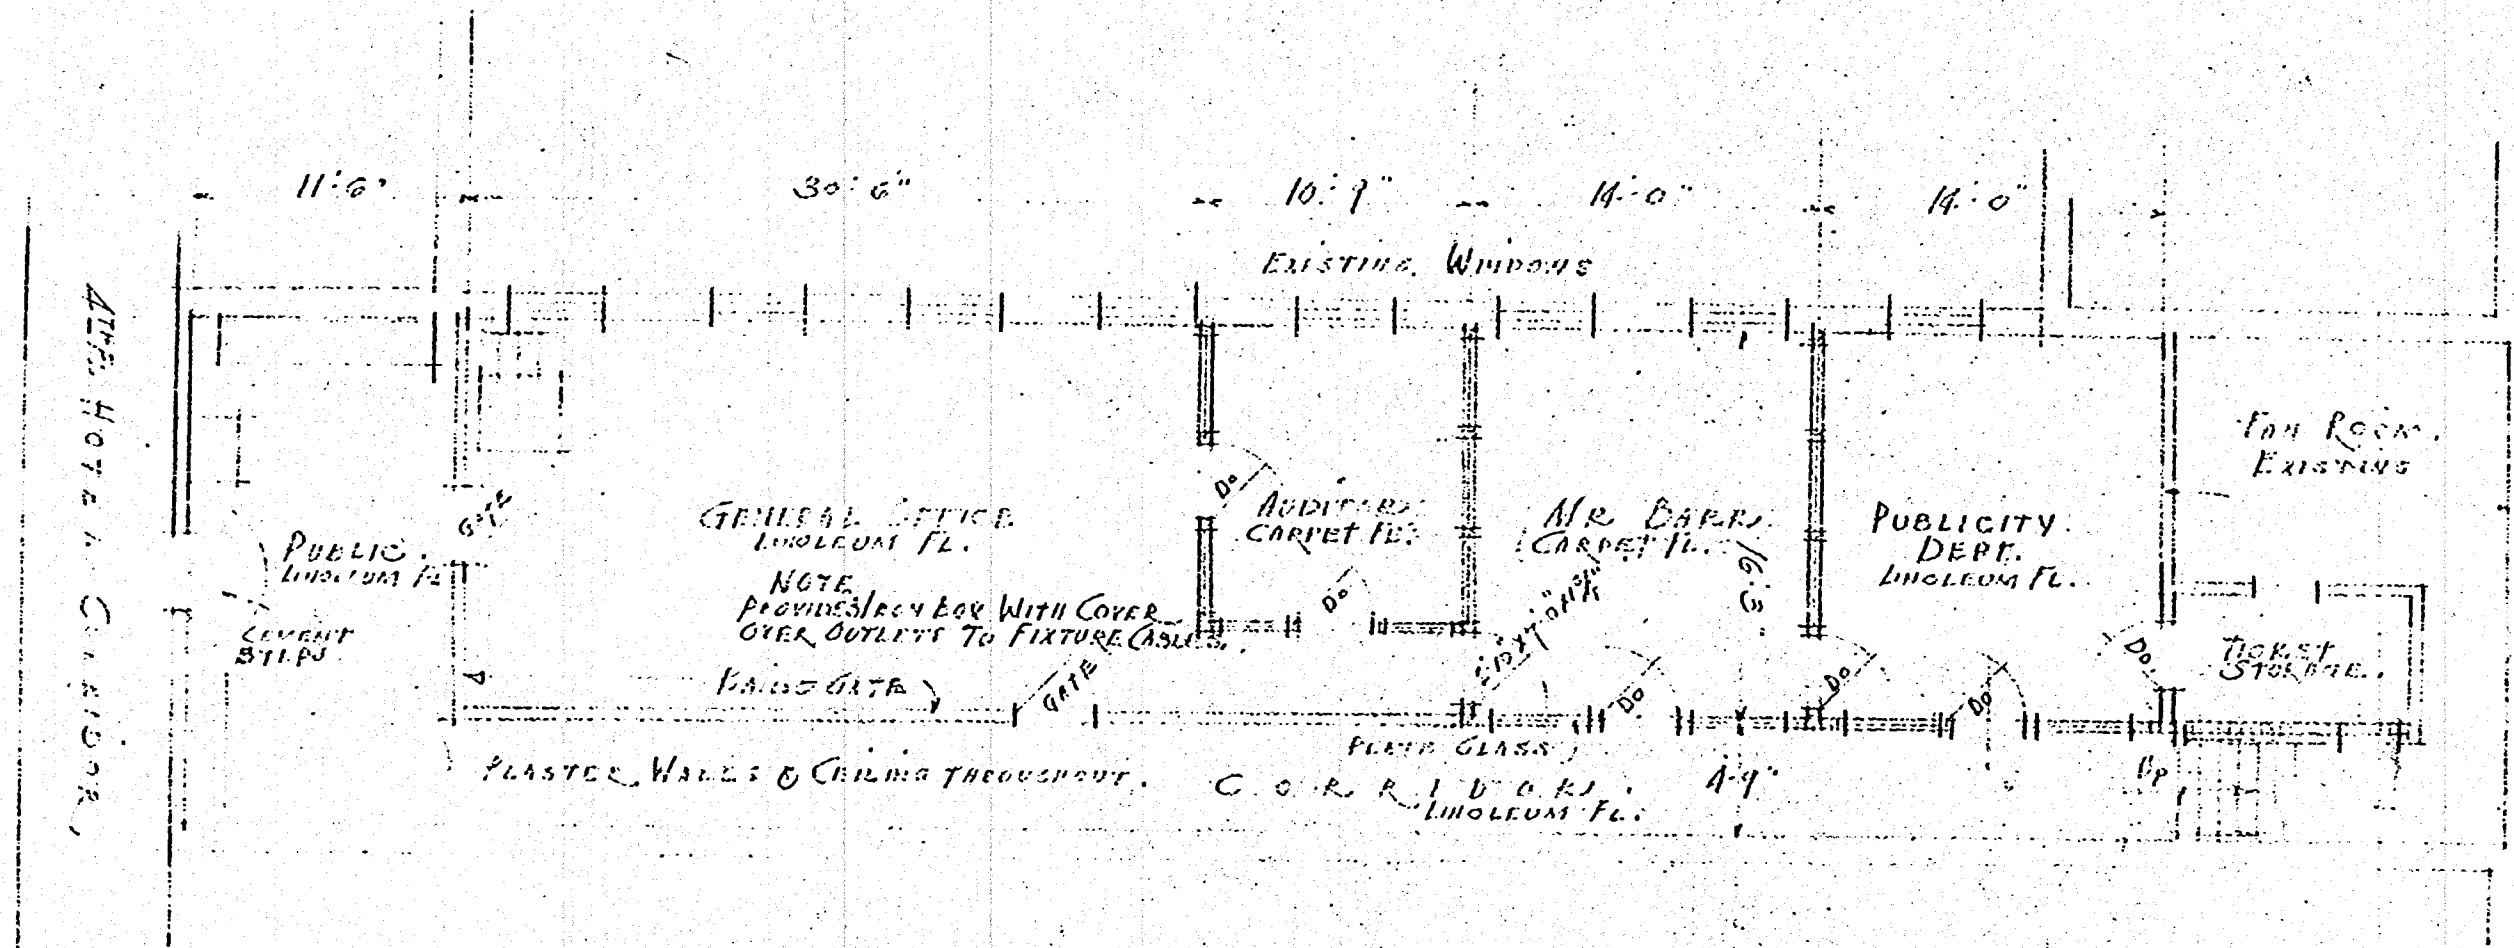 11'-6"
30'-6"
10'-9"
14'-0"
14'-0"
EXISTING WINDOWS
HOTEL CORRIDOR
FAN ROOM.
EXISTING
GATE
PUBLIC.
LINOLEUM FL
CEMENT
STEPS
GENERAL OFFICE
LINOLEUM FL.
NOTE
PROVIDE BOX WITH COVER
OVER OUTLETS TO FIXTURE CABLES.
GATE
GATE
Do
AUDITOR
CARPET FL.
Do
MR BARR.
CARPET FL.
16'-3"
PUBLICITY
DEPT.
LINOLEUM FL.
TICKET
STORAGE.
Do
Do
Do
Do
PLATE GLASS
PLASTER WALLS & CEILING THROUGHOUT.
CORRIDOR.
LINOLEUM FL.
4'-9"
Up